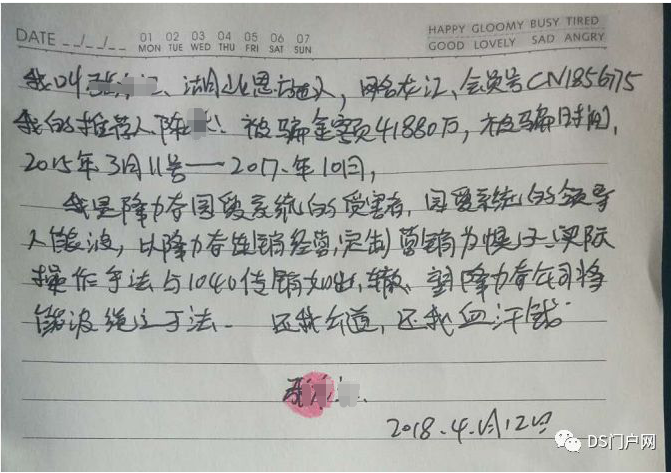 DATE __/__/__ 01 02 03 04 05 06 07
MON TUE WED THU FRI SAT SUN
HAPPY GLOOMY BUSY TIRED
GOOD LOVELY SAD ANGRY
我叫张 江、湖北恩施人，网名龙江、会员号CN185675
我的推荐人陈 ！被骗金额41880万，被骗时间，
2015年3月11号——2017.年10月，
我是隆力奇国爱系统的受害者，国爱系统的领导
人熊波，以隆力奇连锁经营，定制营销为幌子，实际
操作手法与1040传销如出一辙、望隆力奇公司将
熊波绳之于法. 还我公道，还我血汗钱
张
2018.4.月12日
DS门户网